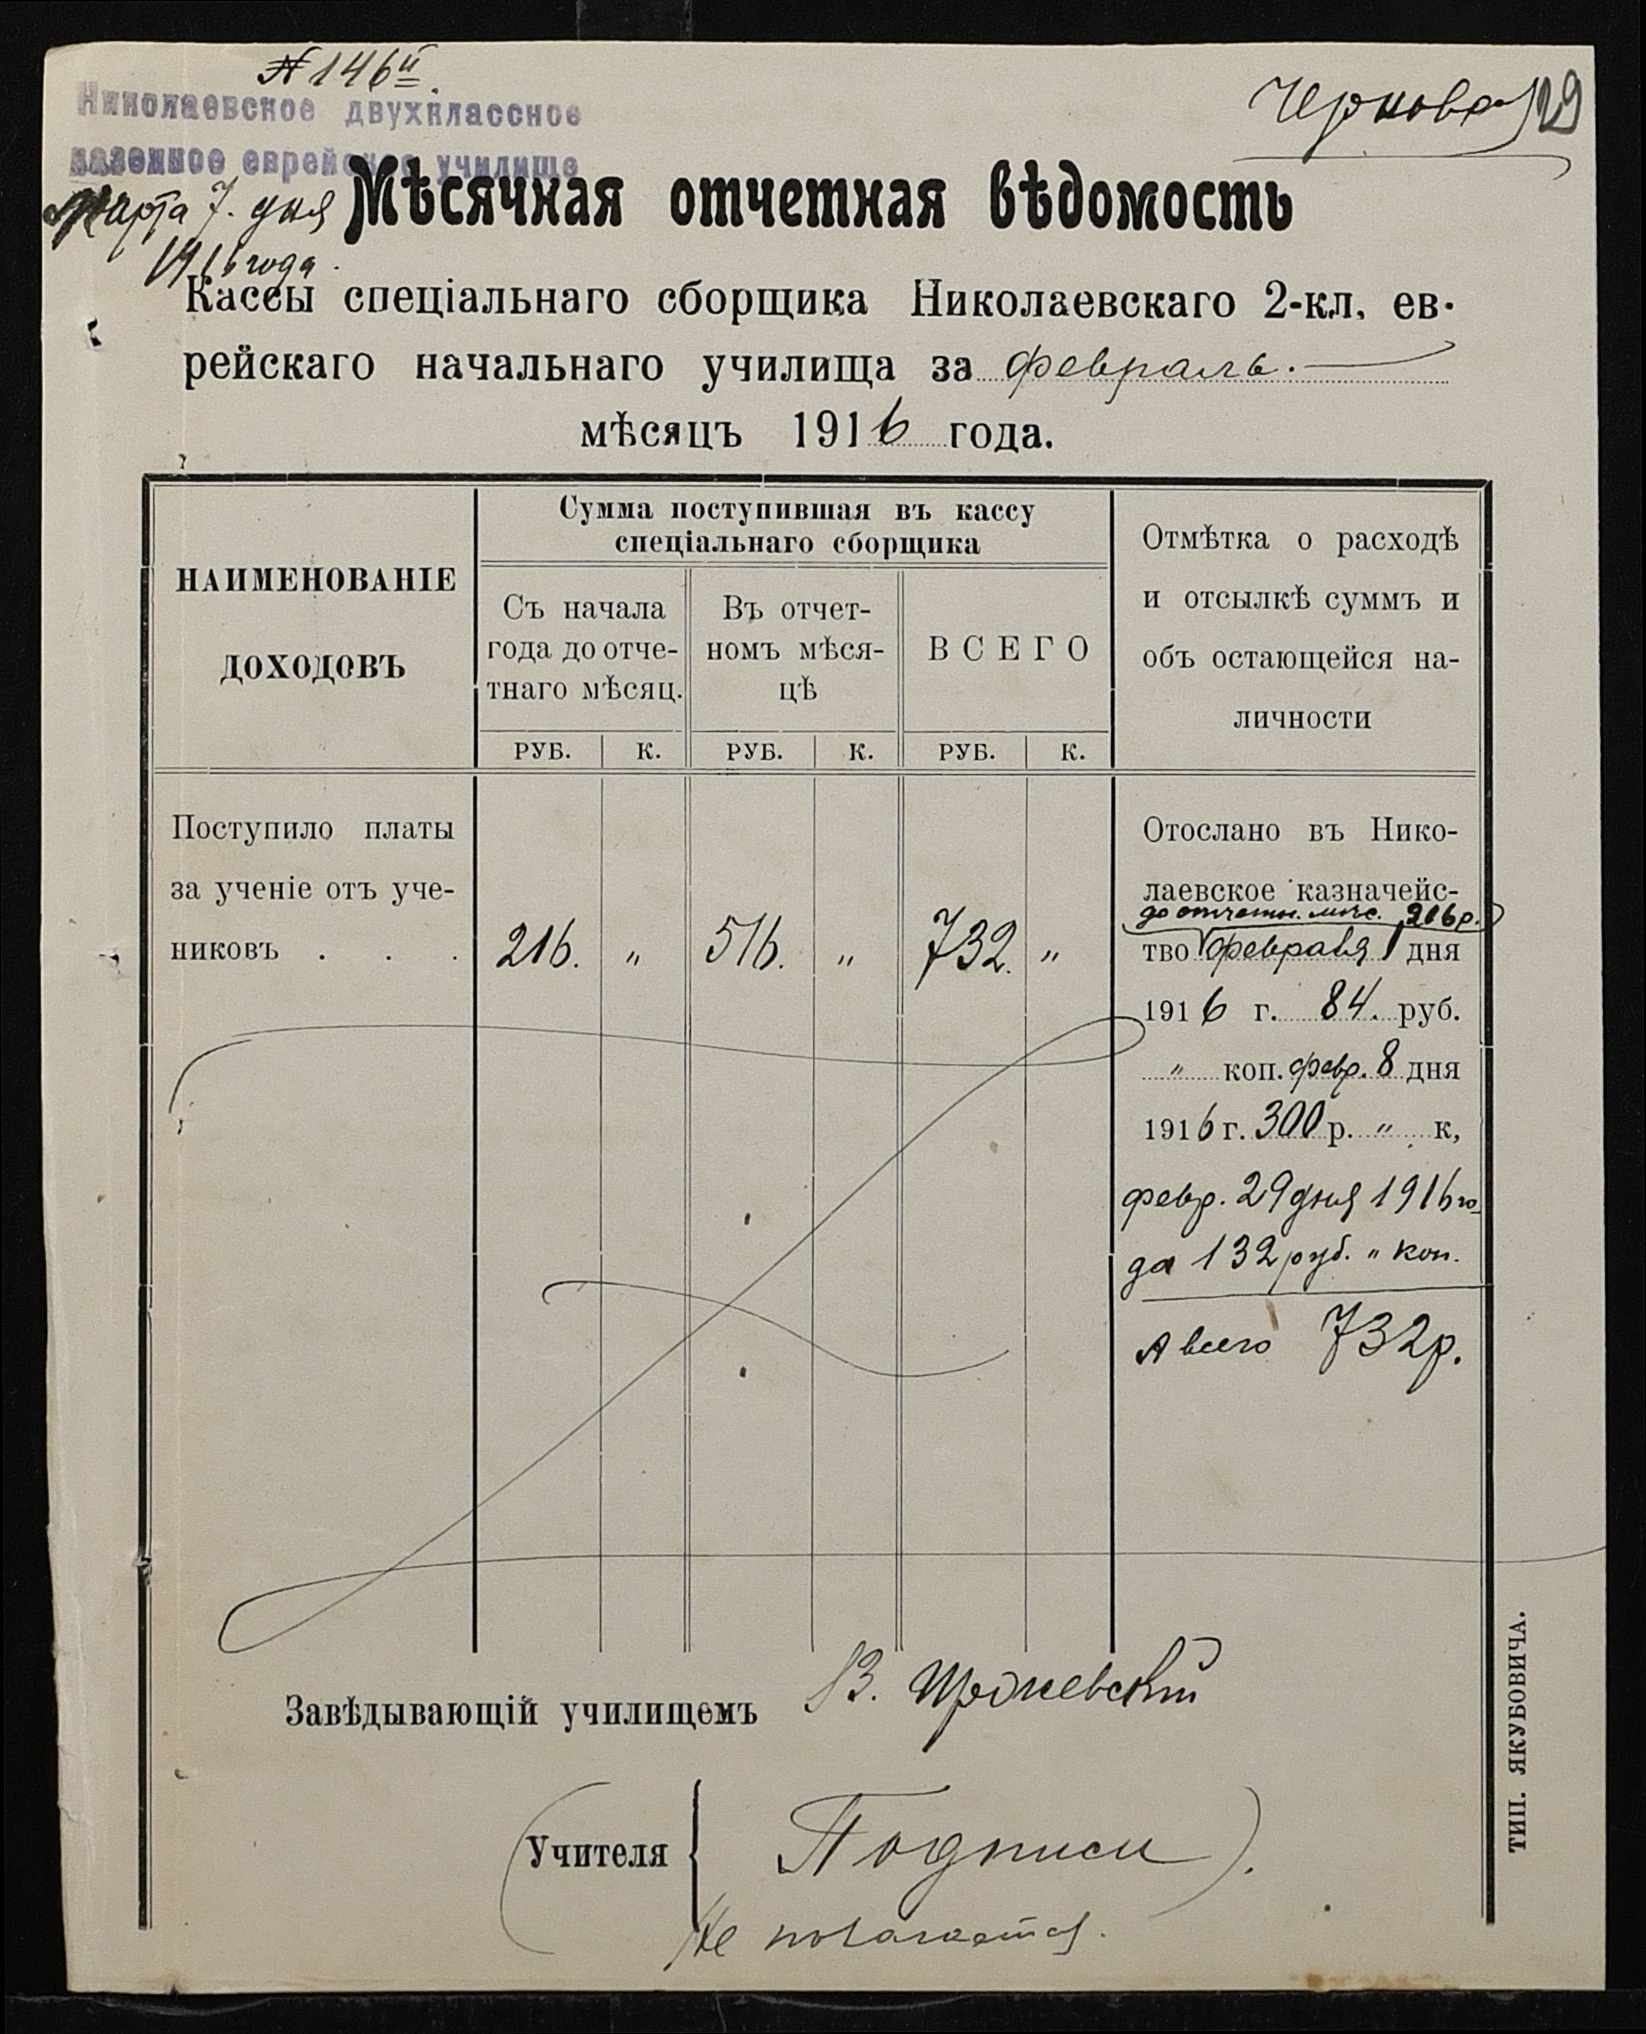 № 146
Николаевское двухклассное
казенное еврейское училище
Марта 7. дня
1916 года.
29
Мѣсячная отчетная вѣдомость
Кассы спеціальнаго сборщика Николаевскаго 2-кл. ев-
рейскаго начальнаго училища за февраль.
мѣсяцъ 1916 года.
НАИМЕНОВАНІЕ
ДОХОДОВЪ
Сумма поступившая въ кассу
спеціальнаго сборщика
Съ начала
года до отче-
тнаго мѣсяц.
Въ отчет-
номъ мѣся-
цѣ
ВСЕГО
РУБ. К. РУБ. К. РУБ. К.
Отмѣтка о расходѣ
и отсылкѣ суммъ и
объ остающейся на-
личности
Поступило платы
за ученіе отъ уче-
никовъ . . .
216. " 516. " 732. "
Отослано въ Нико-
лаевское казначейс-
до отчетн. мѣс. 216 р.
тво февраля 1 дня
1916 г. 84. руб.
" коп. февр. 8 дня
1916 г. 300 р. " к,
февр. 29 дня 1916 го
да 132 руб. " коп.
А всего 732 р.
Завѣдывающій училищемъ
В.
(Учителя { Подписи).
Не полагается.
ТИП. ЯКУБОВИЧА.